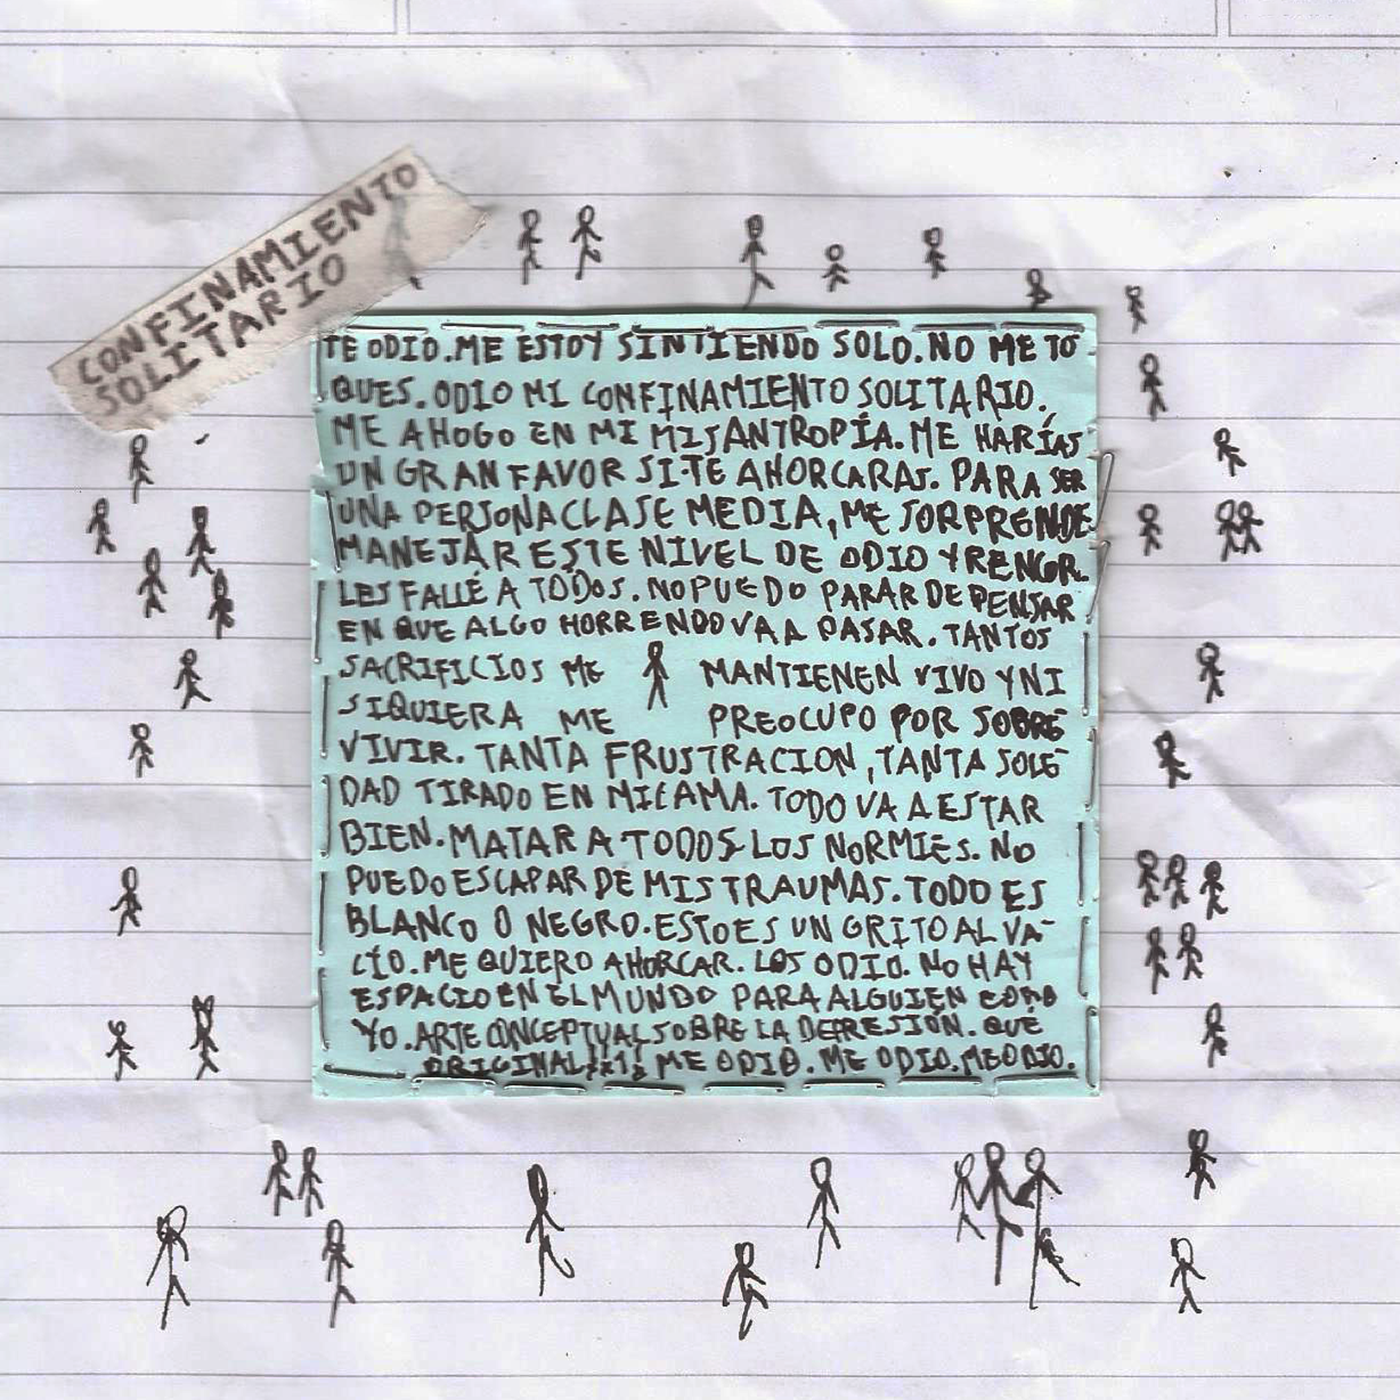 CONFINAMIENTO
SOLITARIO
TE ODIO. ME ESTOY SINTIENDO SOLO. NO ME TO
QUES. ODIO MI CONFINAMIENTO SOLITARIO.
ME AHOGO EN MI MISANTROPÍA. ME HARÍAS
UN GRAN FAVOR SI TE AHORCARAS. PARA SER
UNA PERSONA CLASE MEDIA, ME SORPRENDE
MANEJAR ESTE NIVEL DE ODIO Y RENCOR.
LES FALLÉ A TODOS. NO PUEDO PARAR DE PENSAR
EN QUE ALGO HORRENDO VA A PASAR. TANTOS
SACRIFICIOS ME MANTIENEN VIVO Y NI
SIQUIERA ME PREOCUPO POR SOBRE-
VIVIR. TANTA FRUSTRACION, TANTA SOLE-
DAD TIRADO EN MI CAMA. TODO VA A ESTAR
BIEN. MATAR A TODOS LOS NORMIES. NO
PUEDO ESCAPAR DE MIS TRAUMAS. TODO ES
BLANCO O NEGRO. ESTO ES UN GRITO AL VA-
CÍO. ME QUIERO AHORCAR. LOS ODIO. NO HAY
ESPACIO EN EL MUNDO PARA ALGUIEN COMO
YO. ARTE CONCEPTUAL SOBRE LA DEPRESIÓN. QUÉ
ORIGINAL!!1! ME ODIO. ME ODIO. ME ODIO.